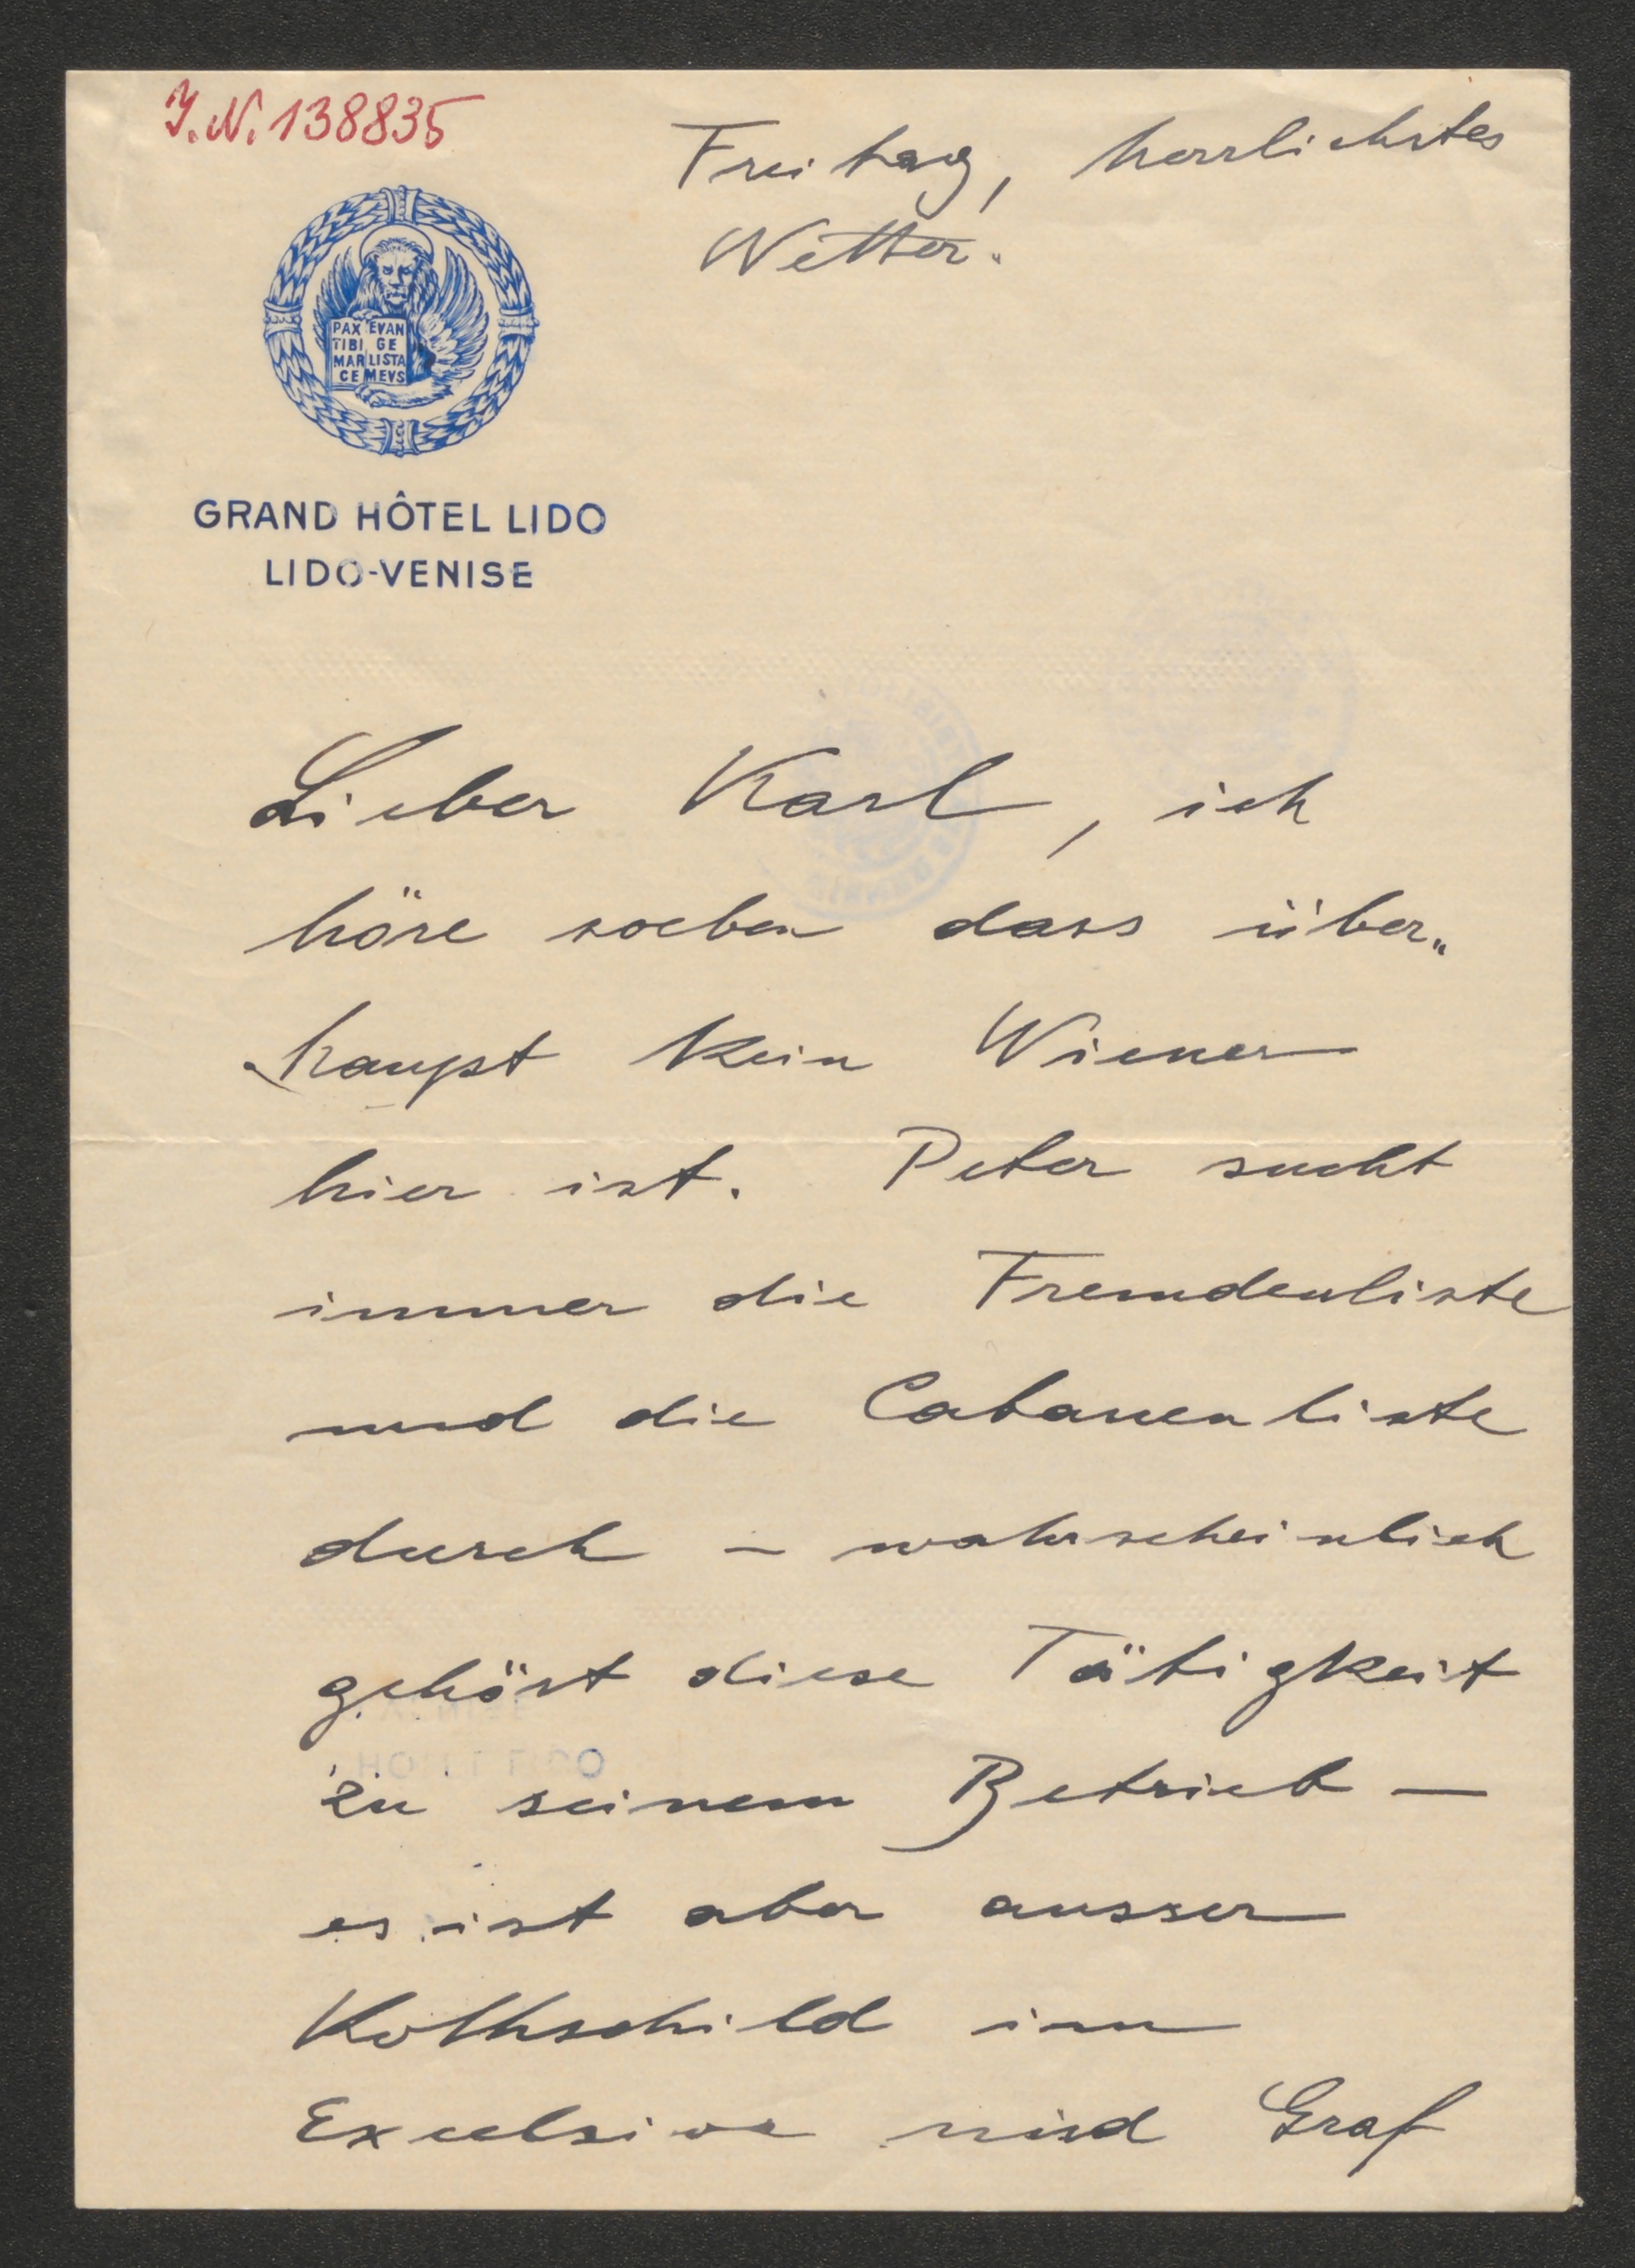 I.N. 138835
Freitag, herrlichstes
Wetter.
PAX EVAN
TIBI GE
MAR LISTA
CE MEVS
GRAND HÔTEL LIDO
LIDO-VENISE
Lieber Karl, ich
höre soeben dass über„
haupt kein Wiener
hier ist. Peter sucht
immer die Fremdenliste
und die Cabanenliste
durch – wahrscheinlich
gehört diese Tätigkeit
zu seinem Betrieb –
es ist aber ausser
Rothschild im
Excelsior und Graf